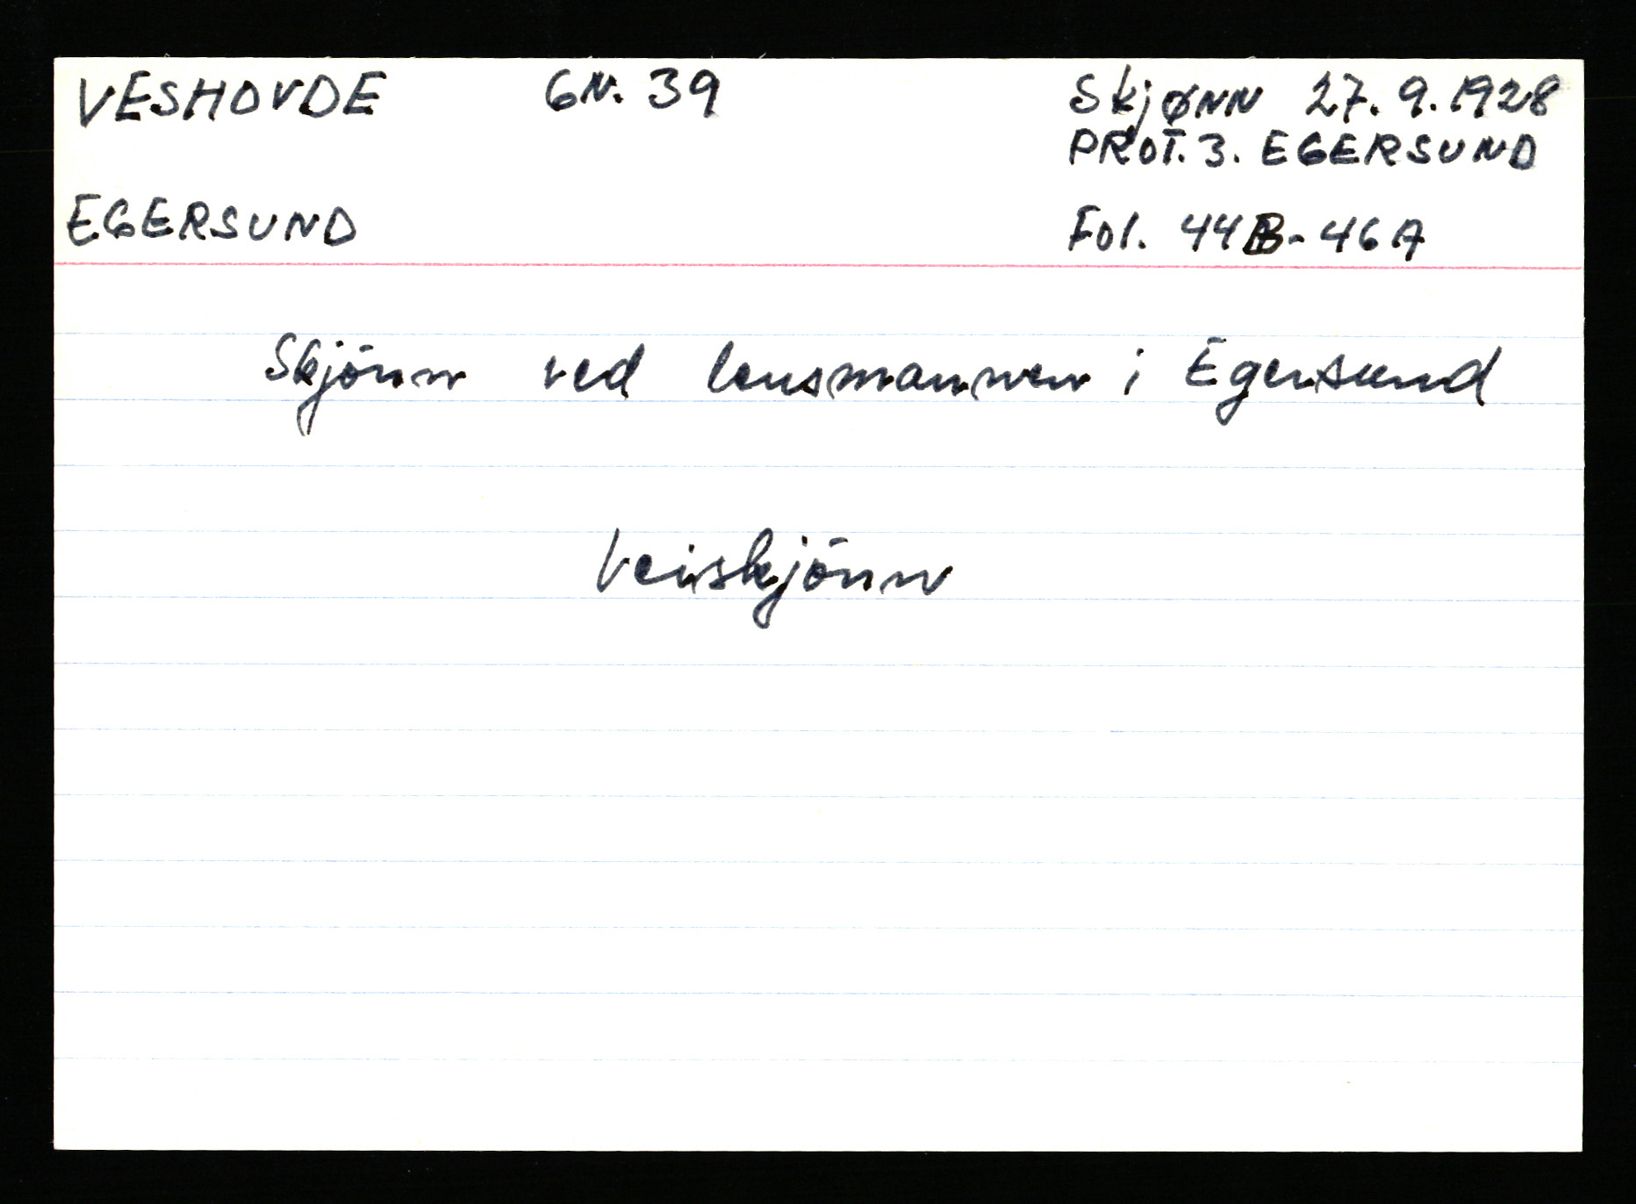 VESHOVDE GN. 39 Skjønn 27.9.1928
PROT. 3. EGERSUND
EGERSUND Fol. 44B-46A
Skjönn ved lensmannen i Egersund
Veiskjönn